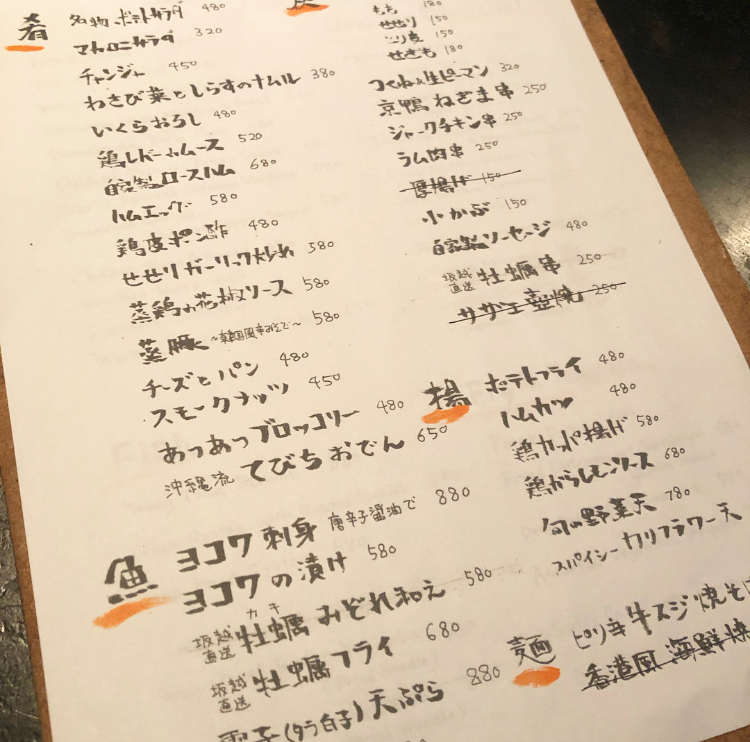 肴
名物 ポテトサラダ 480
マカロニサラダ 320
チャンジャ 450
わさび菜としらすのナムル 380
いくらおろし 480
鶏レバームース 520
自家製ロースハム 680
ハムエッグ 580
鶏皮ポン酢 480
せせりガーリック炒め 580
蒸鶏の花椒ソース 580
蒸豚 ~韓国風辛みそで~ 580
チーズとパン 480
スモークナッツ 450
あつあつブロッコリー 480
沖縄流 てびちおでん 650
魚
ヨコワ刺身 唐辛子醤油で 880
ヨコワの漬け 580
坂越直送 牡蠣 カキ みぞれ和え 580
坂越直送 牡蠣フライ 680
(タラ白子)天ぷら 880
もも 180
せせり 150
150
せぎも 180
つくね&生ピーマン 320
京鴨ねぎま串 250
ジャークチキン串 250
ラム肉串 250
厚揚げ 150
小かぶ 150
自家製ソーセージ 480
坂越直送 牡蠣串 250
サザエ壺焼 250
揚
ポテトフライ 480
ハムカツ 480
鶏カッパ揚げ 580
鶏からレモンソース 680
旬の野菜天 780
スパイシーカリフラワー天
麺
ピリ辛牛スジ焼そば
香港風 海鮮焼